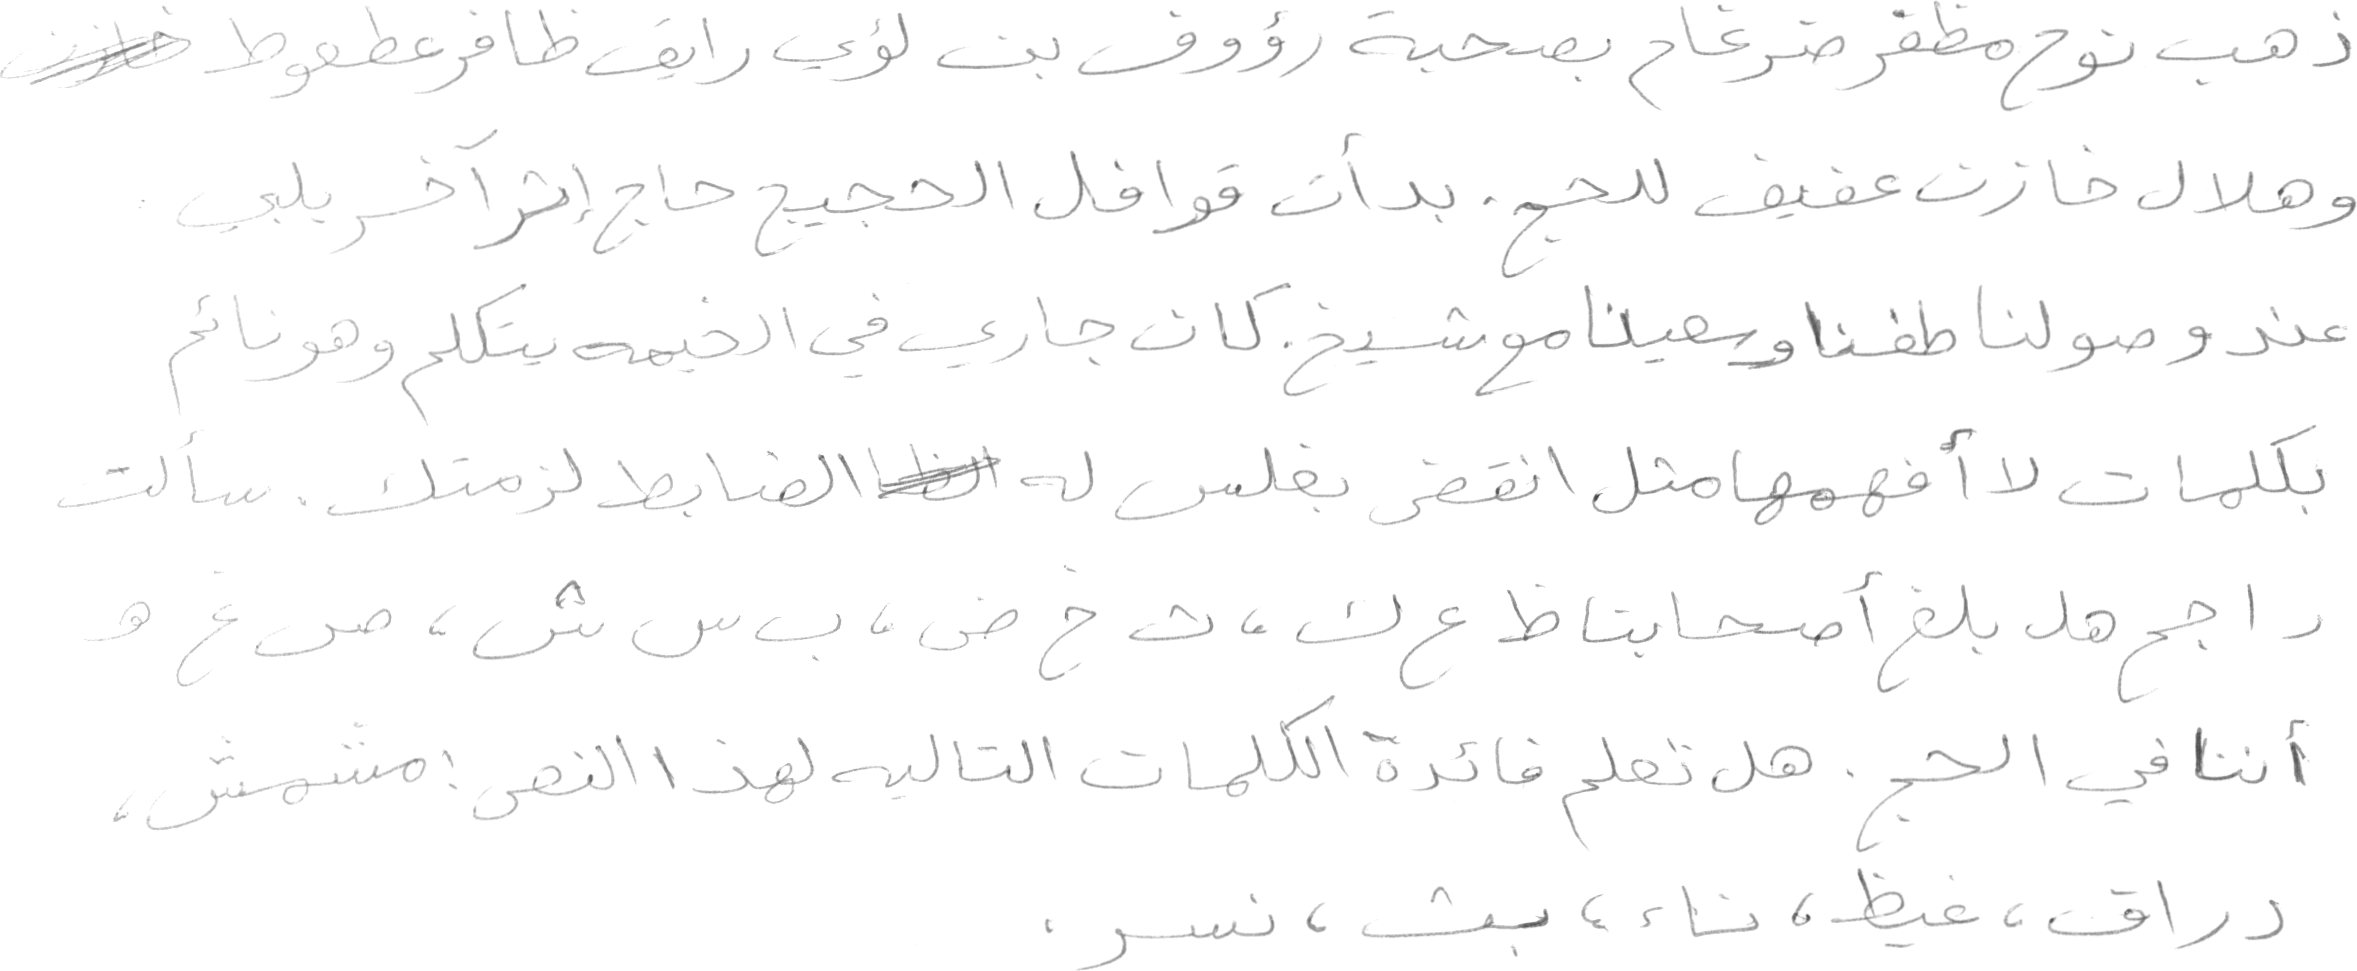 ذهب نوح مظفر ضرغام بصحبة رؤوف بن لؤي رايق ظافر عطعوط
وهلال خازن عفيف للحج. بدأت قوافل الحجيج حاج إثر آخر يلبي.
عند وصولنا طفنا وسعينا مع شيخ. كان جاري في الخيمه يتكلم وهو نائم
بكلمات لا أفهمها مثل انقض بغلس له الضابط لزمتك. سألت
راجح هل بلغ أصحابنا ظ ع ك، ث خ ض، ب س ش، ص غ ه
أننا في الحج. هل تعلم فائدة الكلمات التاليه لهذا النص: مشمش،
دراق، غيظ، ناء، بث، نسر.